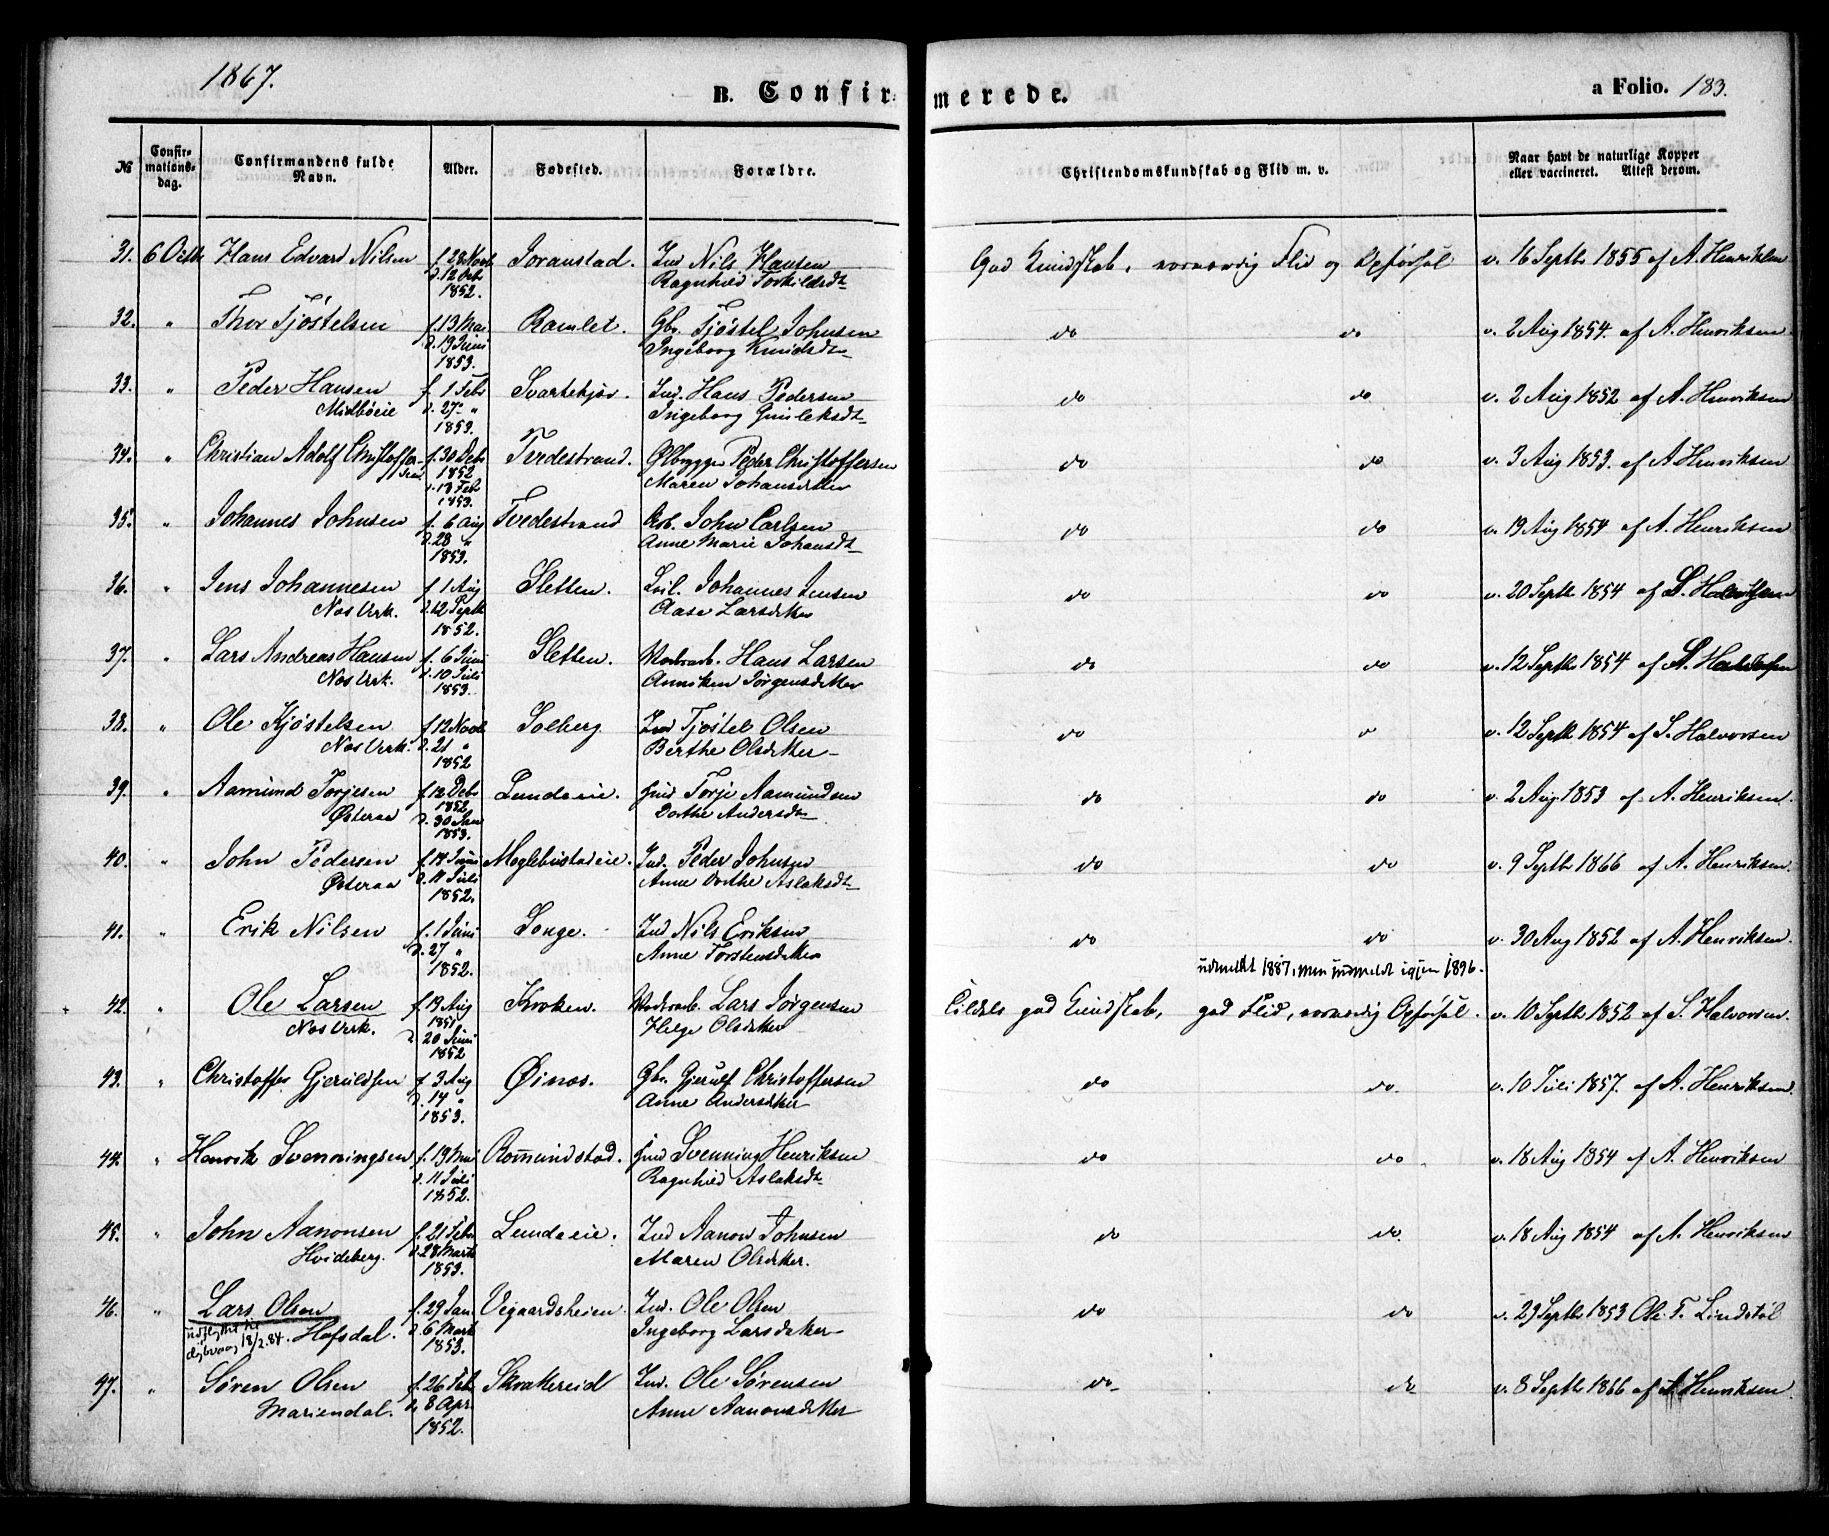 1867.
B. Confirmerede.
a Folio. 183.
No
Confirmationsdag.
Confirmandens fulde Navn.
Alder.
Fødested.
Forældre.
Christendomskundskab og Flid m. v.
Naar havt de naturlige Kopper eller vaccineret. Attest derom.
31. 6 Octb Hans Edvard Nilsen f. 28 Novb Ind Nils Hansen God Kundskab, Flid og Opførsel v. 16 Septb 1855 af A. Henriksen
d. 12 Octb Ragnhild Torkildsdt
1852.
32. " Thor Tjøstelsen f. 13 Mai Ramlet. Gbr. Tjøstel Johnsen do do v. 2 Aug 1854. af A. Henriksen
d. 19 Juni Ingeborg Knudsdt
1853.
33. " Peder Hansen f. 1 Feb Ind. Hans Pedersen do do v. 2 Aug 1852 af A. Henriksen
Midbøeie d. 27 " Ingeborg
1853.
34. " Christian Adolf Christoffersen f. 30 Deb Peder Christoffersen do do v. 3 Aug 1853. af A. Henriksen
1852 Maren Johansdtter
d. 13 Feb
1853.
35. " Johannes Johnsen f. 6 Aug Tvedestrand John Carlsen do do v. 19 Aug 1854 af A. Henriksen
d. 28 " Anne Marie Johansdt
1853.
36. " Jens Johannesen f. 1 Aug Sletten. Johannes Jensen do do v. 20 Septb 1854 af S. Halvorsen
Næs Vrk. d. 12 Septb Aase Larsdtter
1852.
37. " Lars Andreas Hansen f. 6 Juni Sletten. Hans Larsen do do v. 12 Septb 1854 af S. Halvorsen
Næs Vrk. d. 10 Juli Anniken Jørgensdtter
1853.
38. " Ole Kjøstelsen f. 12 Novb Solberg Ind Tjøstel Olsen do do v. 12 Septb 1854 af S. Halvorsen
Næs Vrk. d. 21 " Berthe Olsdtter
1852
39. " Aamund Torjesen f. 12 Deb Lundeeie. Ind Torje Aamundsen do do v. 2 Aug 1853 af A. Henriksen.
1852
Østeraa d. 30 Jan Dorthe Andersdtr
1853.
40. " John Pedersen f. 14 Juni Møglebustadeie. Ind. Peder Johnsen do do v. 9 Septb 1866 af A. Henriksen.
Østeraa d. 11 Juli Anne Dorthe Aslaksdt
1852.
41. " Erik Nilsen f. 1 Juni Songe. Ind Nils Eriksen do do v. 30 Aug 1852 af A. Henriksen.
d. 27 " Anne Torstensdatter
1852.
udmeldt 1887, men indmeldt igjen 1896.
42. " Ole Larsen f. 19 Aug Kroken. Lars Jørgensen Tildels god Kundskab, god Flid, Opførsel. v. 10 Septb 1852 af S. Halvorsen.
Næs Vrk. 1851 Helge Olsdtter
d. 20 Juni
1852
43. " Christoffer Gjerulfsen f. 3 Aug Øinæs. Gbr. Gjerulf Christoffersen do do v. 10 Juli 1857. af A. Henriksen.
d. 14 " Anne Andersdtter
1853.
44. " Henrik Svenningsen f. 19 Mai Romundstad. Ind Svenning Henriksen do do v. 18 Aug 1854 af A. Henriksen
d. 11 Juli Ragnhild Aslaksdt
1852.
45. " John Aanonsen f. 21 Feb Lundeeie. Ind Aanon Johnsen do do v. 18 Aug 1854 af A. Henriksen
Hvideberg. d. 28 Marts Maren Olsdtter.
1853.
46. " Lars Olsen f. 29 Jan. Vegaardsheien. Ind. Ole Olsen do do v. 29 Septb 1853 Ole T. Lindstøl
udflyttet til 18/2.84. Hafsdal. d. 6 Marts Ingeborg Larsdatter
1853.
47. " Søren Olsen f. 26 Feb Skvakereid Ind. Ole Sørensen do do v. 8 Septb 1866 af A. Henriksen.
Mariendal. d. 8 Apr. Anne Aanonsdtter
1852.